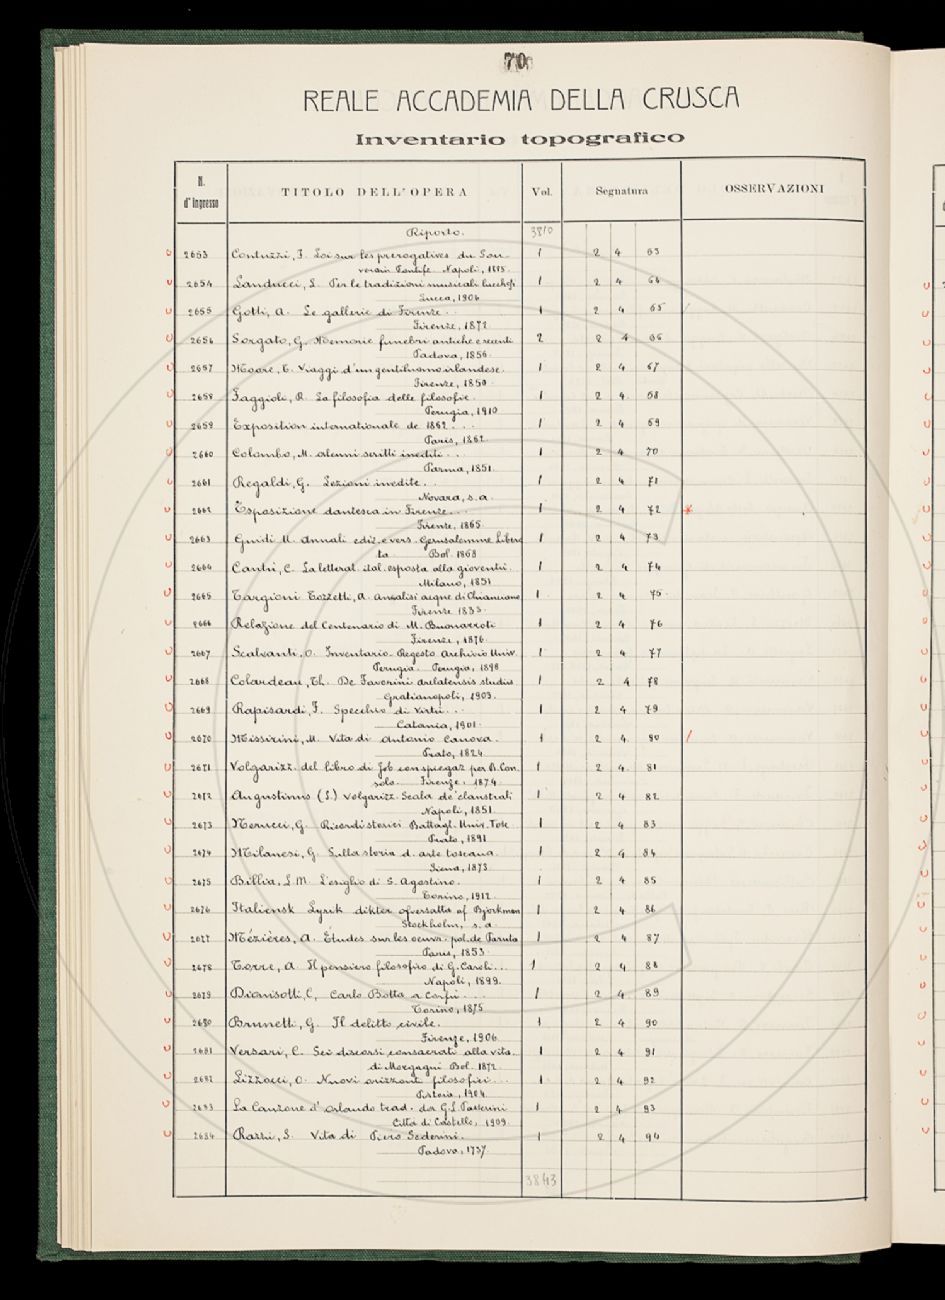 70
REALE ACCADEMIA DELLA CRUSCA
Inventario topografico
N. d'ingresso TITOLO DELL'OPERA Vol. Segnatura OSSERVAZIONI
Riporto. 3810
2653 Contuzzi, F. Loi sur les prerogatives du Sou- 1 2 4 63
verain Pontife. Napoli, 1885.
2654 Landucci, L. Per le tradizioni musicali lucchesi 1 2 4 64
Lucca, 1906
2655 Gotti, A. Le gallerie di Firenze. 1 2 4 65
Firenze, 1872.
2656 Sorgato, G. Memorie funebri antiche e recenti 2 2 4 66
Padova, 1856.
2657 Moore, T. Viaggi d'un gentiluomo irlandese. 1 2 4 67
Firenze, 1850.
2658 Faggioli, R. La filosofia delle filosofie. 1 2 4 68
Perugia, 1910
2659 Exposition internationale de 1862... 1 2 4 69
Paris, 1862.
2660 Colombo, M. Alcuni scritti inediti... 1 2 4 70
Parma, 1851.
2661 Regaldi, G. Lezioni inedite.. 1 2 4 71
Novara, s. a.
2662 Esposizione dantesca in Firenze... 1 2 4 72 *
Firenze, 1865
2663 Guidi U. Annali ediz. e vers. Gerusalemme Libera 1 2 4 73
ta Bol. 1868
2664 Cantù, C. La letterat. ital. esposta alla gioventù. 1 2 4 74
Milano, 1851
2665 Targioni Tozzetti, A. Analisi acque di Chianciano 1 2 4 75
Firenze 1833.
2666 Relazione del Centenario di M. Buonarroti 1 2 4 76
Firenze, 1876.
2667 Scalvanti, O. Inventario-Regesto Archivio Univ. 1 2 4 77
Perugia. Perugia, 1898
2668 Colardeau, Th. De Favorini arelatensis studiis 1 2 4 78
Gratianopoli, 1903.
2669 Rapisardi, F. Specchio di virtù... 1 2 4 79
Catania, 1901.
2670 Missirini, M. Vita di Antonio Canova. 1 2 4 80 /
Prato, 1824
2671 Volgarizz. del libro di Job con spiegaz. per B. Con 1 2 4 81
solo. Firenze. 1874.
2672 Augustinus (S.) Volgarizz. Scala de' claustrali 1 2 4 82
Napoli, 1851
2673 Nerucci, G. Ricordi storici Battagl. Univ. Tosc 1 2 4 83
Prato, 1891
2674 Milanesi, G. Sulla storia d. arte toscana. 1 2 4 84
Siena, 1873.
2675 Billia, L. M. L'esiglio di S. Agostino. 1 2 4 85
Torino, 1912.
2676 Italiensk Lyrik dikter ofversatta af Björkman 1 2 4 86
Stockholm, s. a.
2677 Mézières, A. Études sur les oeuvr. pol. de Paruta 1 2 4 87
Paris, 1853.
2678 Torre, A. Il pensiero filosofico di G. Caroli... 1 2 4 88
Napoli, 1899.
2679 Dionisotti, C, Carlo Botta a Corfù.... 1 2 4 89
Torino, 1875
2680 Brunetti, G. Il delitto civile. 1 2 4 90
Firenze, 1906.
2681 Versari, C. Sei discorsi consacrati alla vita. 1 2 4 91
di Morgagni Bol. 1872.
2682 Lizzocci, O. Nuovi orizzonti filosofici... 1 2 4 92
Pistoia, 1904.
2683 La Canzone d'Orlando trad. da G. L. Passerini 1 2 4 93
Città di Castello, 1909.
2684 Razzi, S. Vita di Piero Soderini. 1 2 4 94
Padova, 1737.
3843